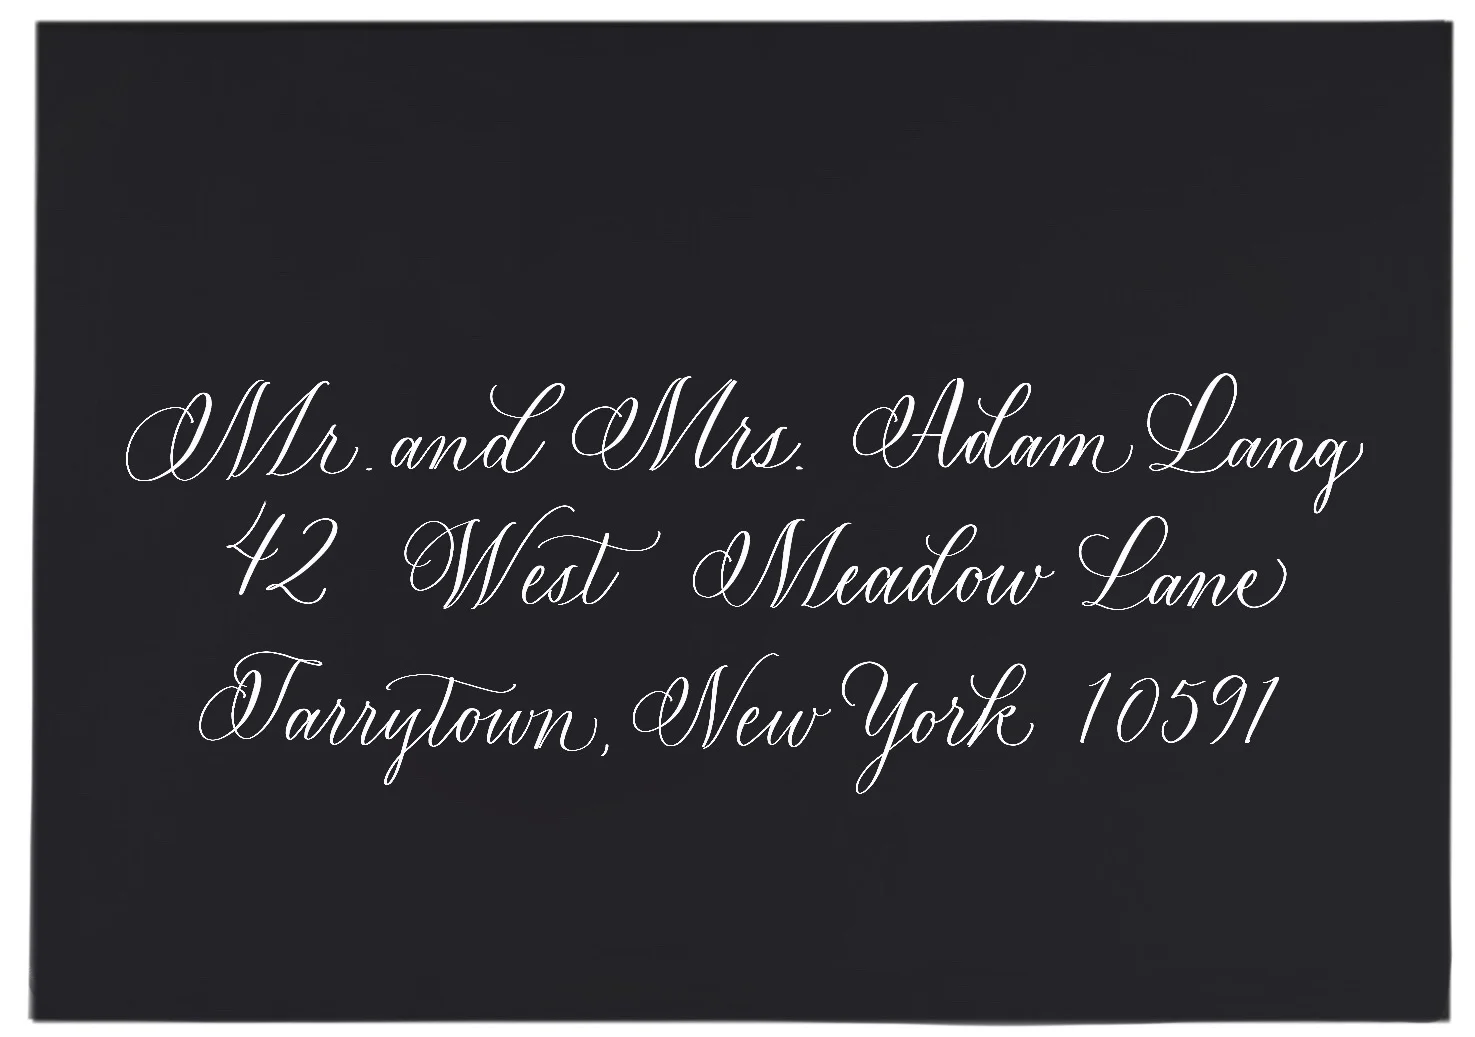 Mr. and Mrs. Adam Lang
42 West Meadow Lane
Tarrytown, New York 10591